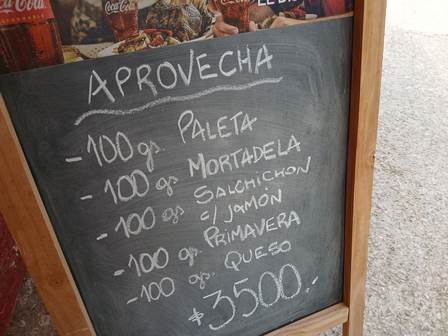 Coca-Cola
Coca-Cola
APROVECHA
- 100 gs. PALETA
- 100 gs MORTADELA
- 100 gs SALCHICHON
c/ JAMÓN
- 100 gs. PRIMAVERA
- 100 gs. QUESO
$3500.-